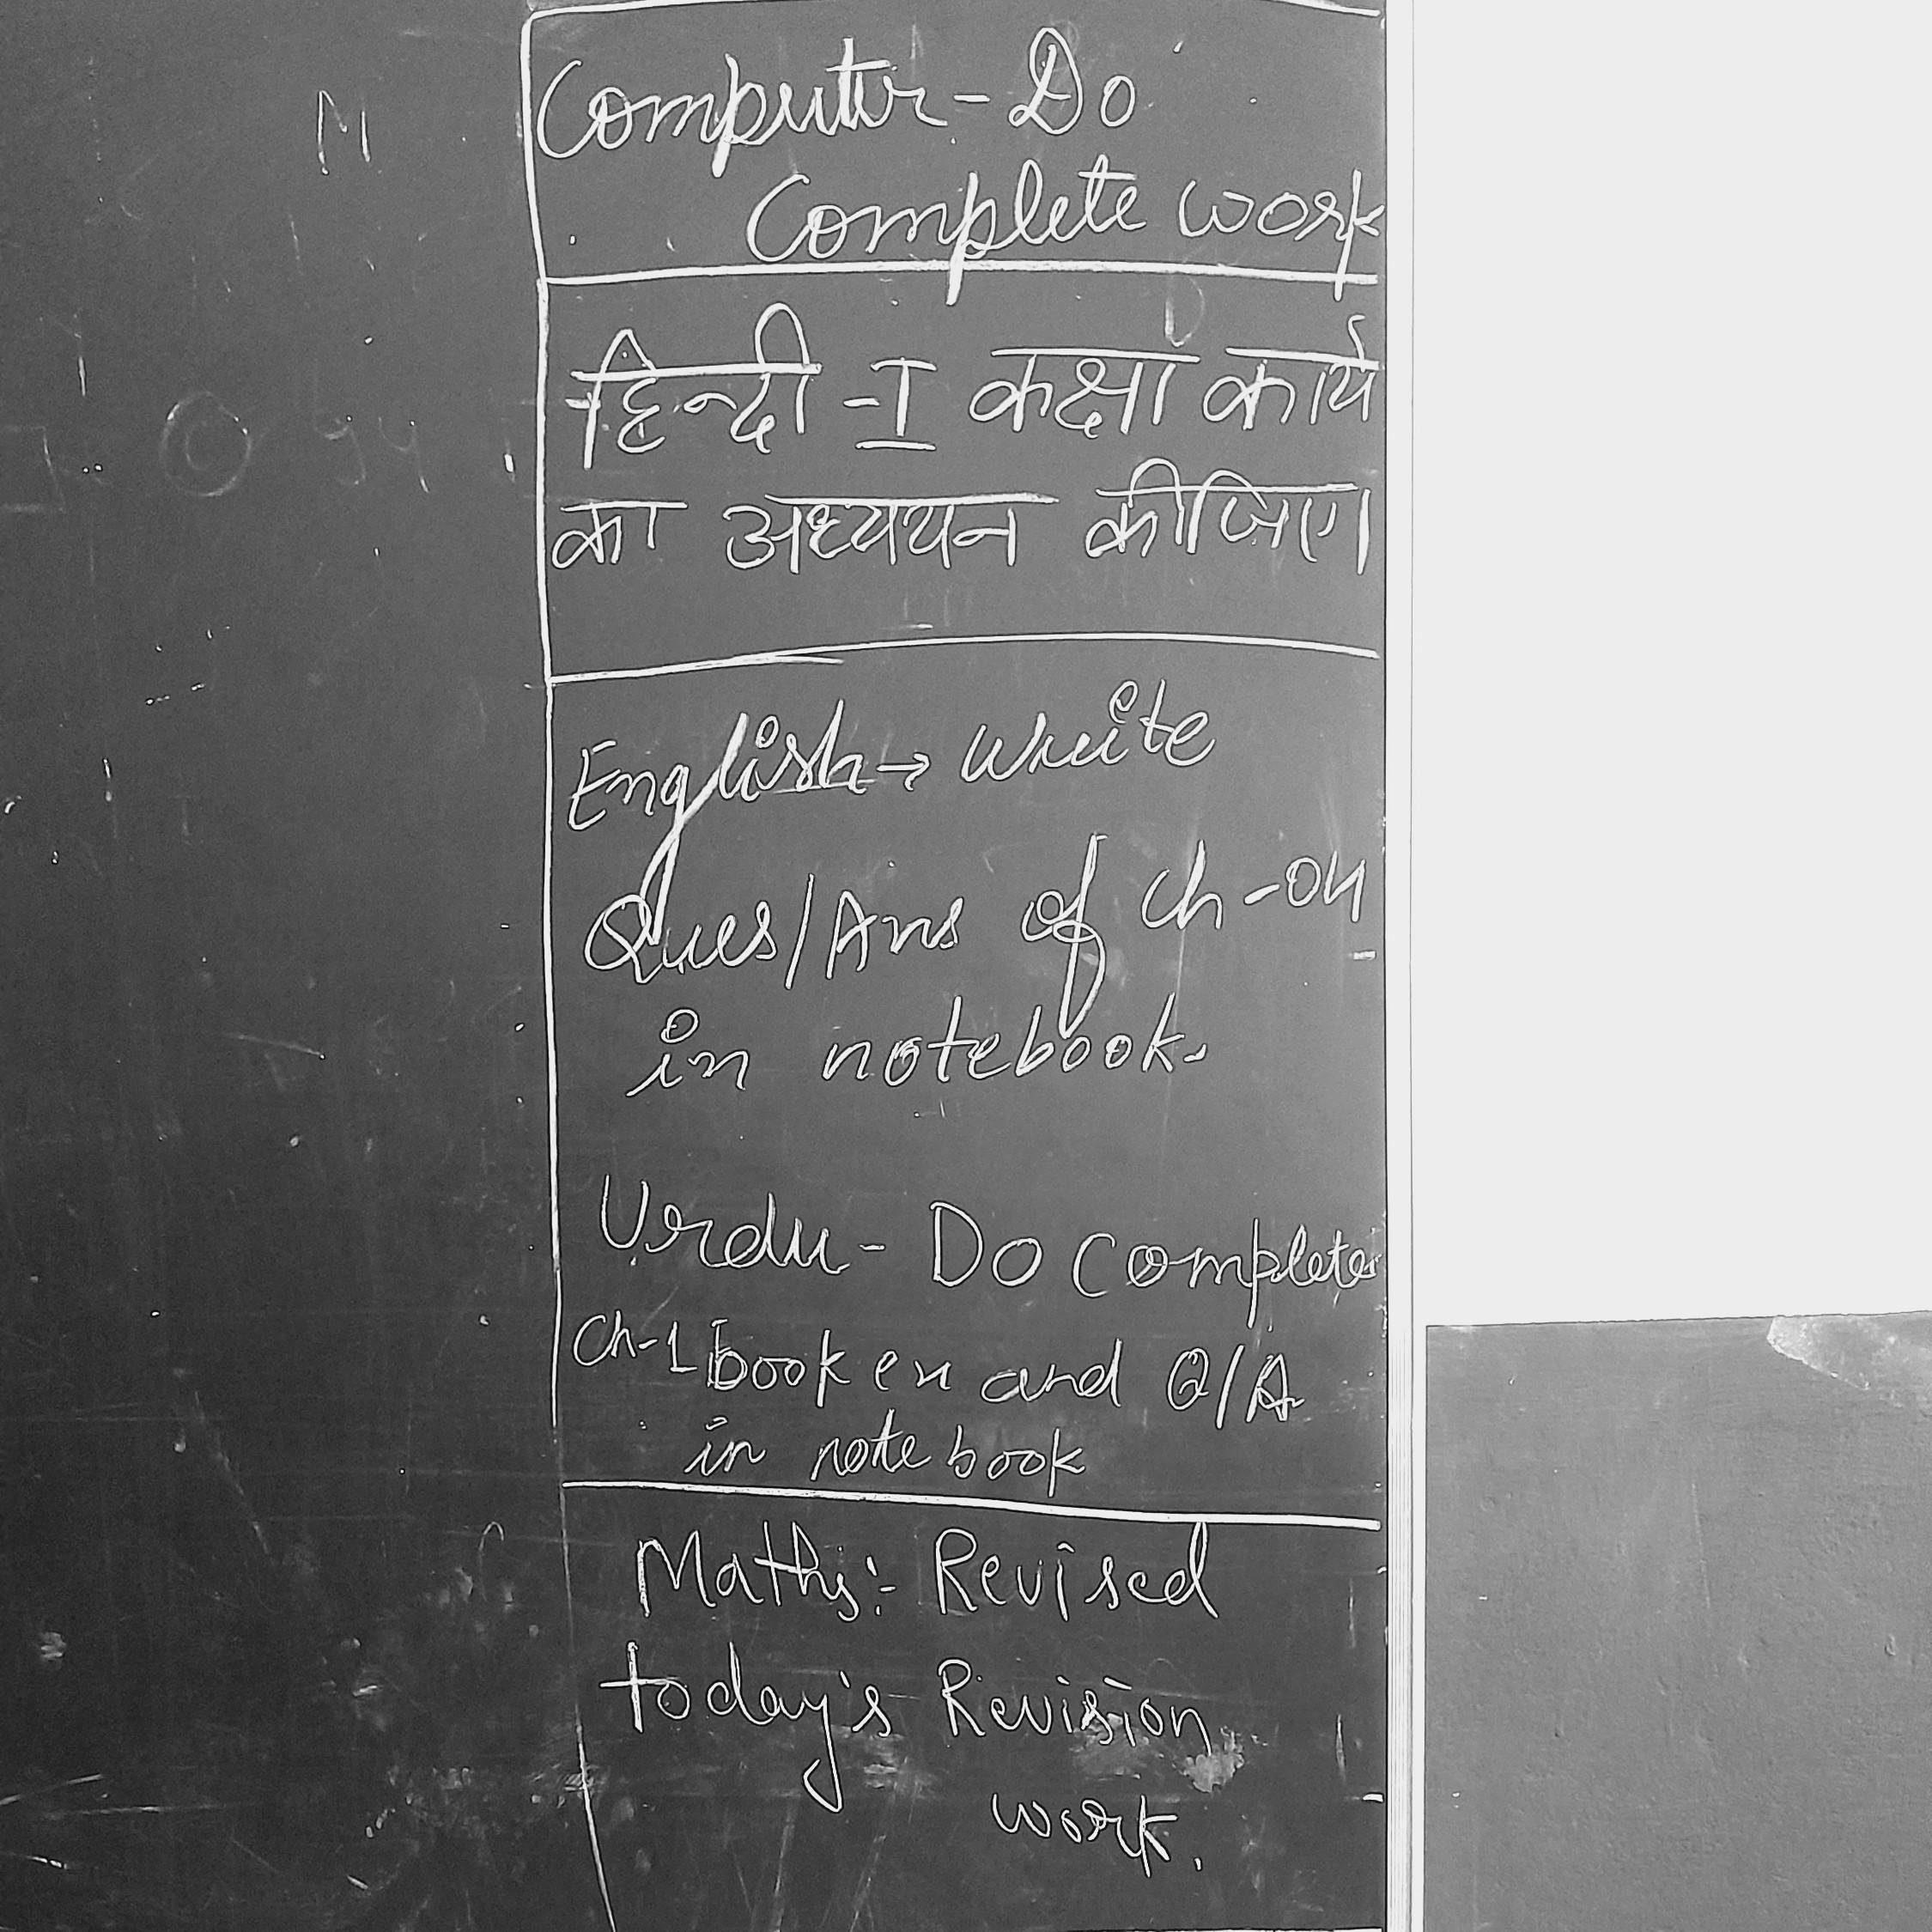 Computer - Do
Complete work
हिन्दी - I कक्षा कार्य
का अध्ययन कीजिए।
English → Write
Ques/Ans of Ch-04
in notebook.
Urdu - Do complete
Ch-1 book ex and Q/A
in note book
Maths:- Revised
today's Revision
work.